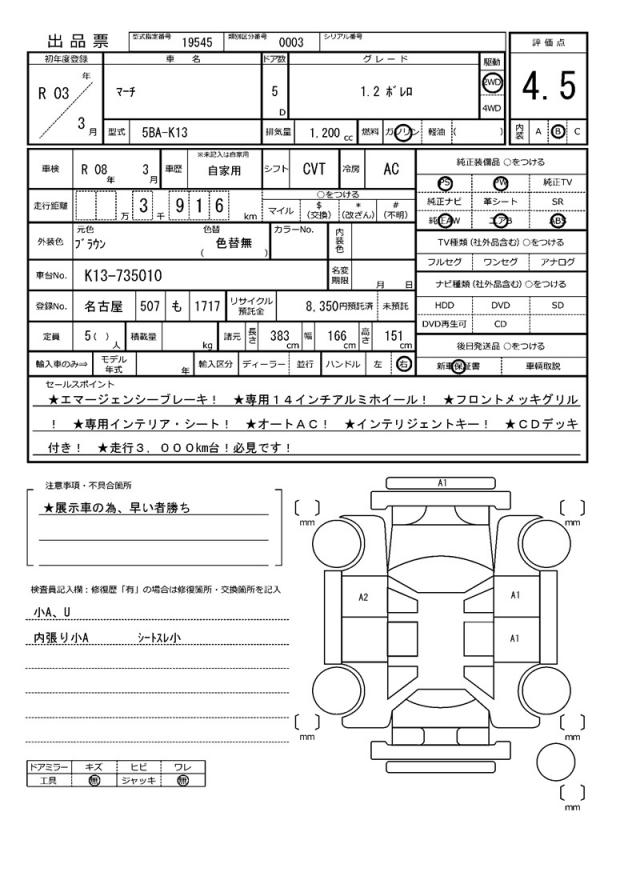 出品票 型式指定番号 19545 類別区分番号 0003 シリアル番号
評価点
初年度登録 車名 ドア数 グレード 駆動
R 03 年 3 月 マーチ 5 D 1.2 ボレロ 2WD 4WD 4.5
型式 5BA-K13 排気量 1.200 cc 燃料 ガソリン 軽油 ( ) 内装 A B C
車検 R 08 年 3 月 車歴 ※未記入は自家用 自家用 シフト CVT 冷房 AC 純正装備品 ○をつける
PS PW 純正TV
走行距離 万 3 千 916 km ○をつける 純正ナビ 革シート SR
マイル $(交換) *(改ざん) #(不明) 純正AW エアB ABS
外装色 元色 ブラウン 色替 色替無 ( ) カラーNo. 内装色 TV種類 (社外品含む) ○をつける
フルセグ ワンセグ アナログ
車台No. K13-735010 名変期限 月 日 ナビ種類 (社外品含む) ○をつける
登録No. 名古屋 507 も 1717 リサイクル預託金 8,350円預託済 未預託 HDD DVD SD
DVD再生可 CD
定員 5( ) 人 積載量 kg 諸元 長さ 383 cm 幅 166 cm 高さ 151 cm 後日発送品 ○をつける
輸入車のみ⇒ モデル年式 年 輸入区分 ディーラー 並行 ハンドル 左 右 新車保証書 車輌取説
セールスポイント
★エマージェンシーブレーキ! ★専用14インチアルミホイール! ★フロントメッキグリル
! ★専用インテリア・シート! ★オートAC! ★インテリジェントキー! ★CDデッキ
付き! ★走行3.000km台!必見です!
注意事項・不具合箇所
★展示車の為、早い者勝ち
検査員記入欄:修復歴「有」の場合は修復箇所・交換箇所を記入
小A、U
内張り小A シートスレ小
ドアミラー キズ ヒビ ワレ
工具 無 ジャッキ 無
A1
mm mm
A2 A1
A1
mm mm
mm